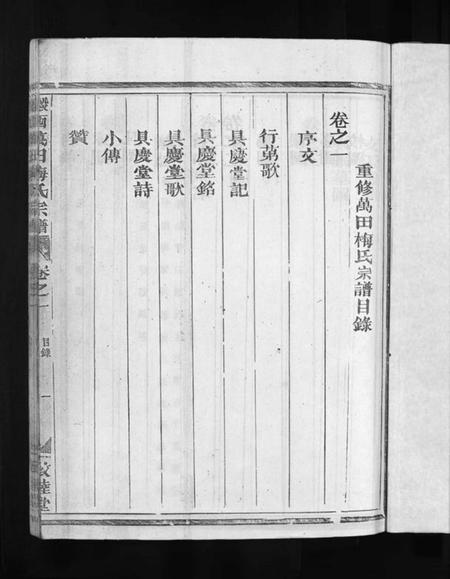 重修萬田梅氏宗譜目錄
卷之一
序文
行苐歌
具慶堂記
具慶堂銘
具慶堂歌
具慶堂詩
小傳
贊
萬田梅氏宗譜
卷之一
目錄
一
敦睦堂